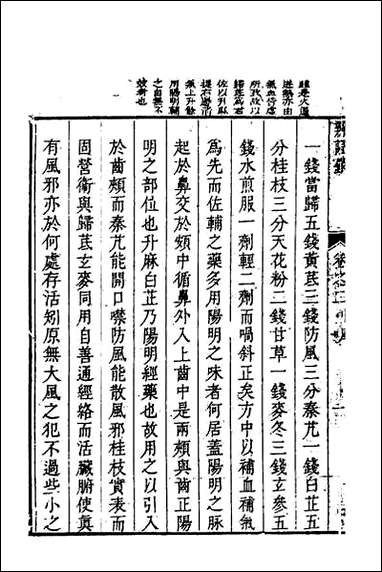 雖是火逼
迸熱亦由
氣血皆虛
所致故以
歸芪為君
佐以升麻
提右邊治
氣上升餘
用陽明輔
之自無不
效者也
辨證錄
卷之二
一錢當歸五錢黃芪三錢防風三分秦艽一錢白芷五
分桂枝三分天花粉二錢甘草一錢麥冬三錢玄參五
錢水煎服一劑輕二劑而喎斜正矣方中以補血補氣
為先而佐輔之藥多用陽明之味者何居蓋陽明之脉
起於鼻交於頞中循鼻外入上齒中是兩頰與齒正陽
明之部位也升麻白芷乃陽明經藥也故用之以引入
於齒頰而秦艽能開口噤防風能散風邪桂枝實表而
固營衛與歸芪玄麥同用自善通經絡而活臟腑使眞
有風邪亦於何處存活矧原無大風之犯不過些小之